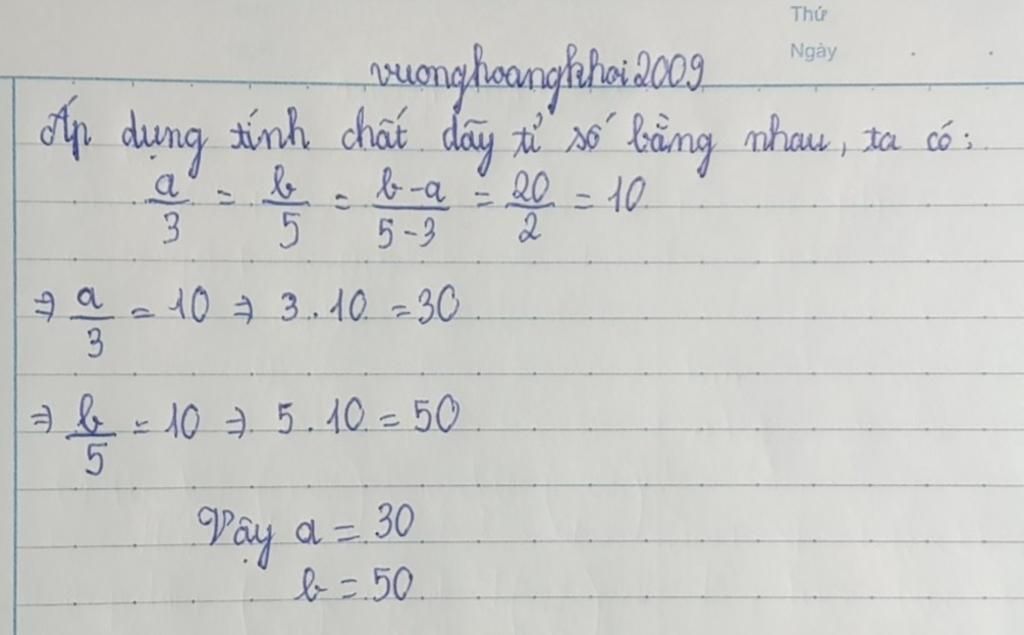 Thứ
Ngày
vuonghoangkhoi2009
Áp dụng tính chất dãy tỉ số bằng nhau, ta có:
a/3 = b/5 = (b-a)/(5-3) = 20/2 = 10
⇒ a/3 = 10 ⇒ 3.10 = 30
⇒ b/5 = 10 ⇒ 5.10 = 50
Vậy a = 30
b = 50